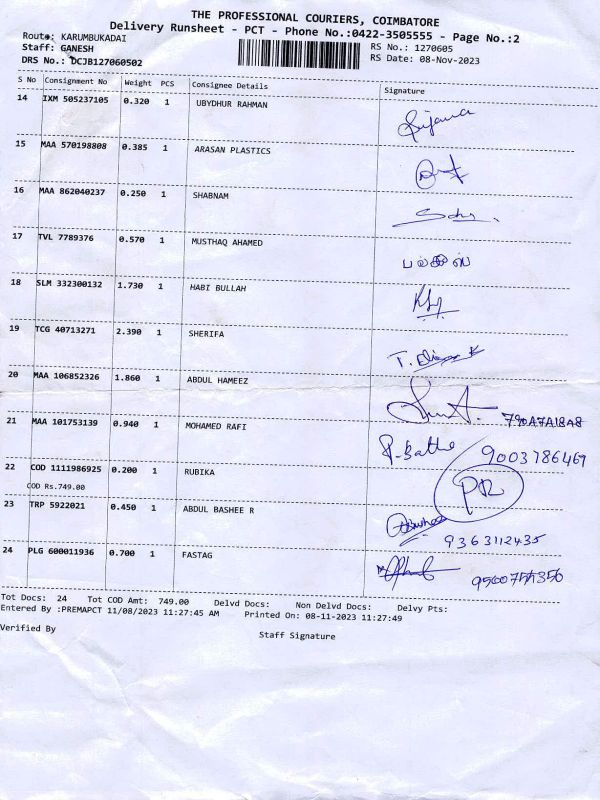 THE PROFESSIONAL COURIERS, COIMBATORE
Delivery Runsheet - PCT - Phone No.:0422-3505555 - Page No.:2
Route: KARUMBUKADAI
RS No.: 1270605
Staff: GANESH
RS Date: 08-Nov-2023
DRS No.: DCJB127060502
S No Consignment No Weight PCS Consignee Details Signature
14 IXM 505237105 0.320 1 UBYDHUR RAHMAN
15 MAA 570198808 0.385 1 ARASAN PLASTICS
16 MAA 862040237 0.250 1 SHABNAM
17 TVL 7789376 0.570 1 MUSTHAQ AHAMED
18 SLM 332300132 1.730 1 HABI BULLAH
19 TCG 40713271 2.390 1 SHERIFA
20 MAA 106852326 1.860 1 ABDUL HAMEEZ
21 MAA 101753139 0.940 1 MOHAMED RAFI
9003786469
22 COD 1111986925 0.200 1 RUBIKA PR
COD Rs.749.00
23 TRP 5922021 0.450 1 ABDUL BASHEE R
9363112435
24 PLG 600011936 0.700 1 FASTAG
Tot Docs: 24 Tot COD Amt: 749.00 Delvd Docs: Non Delvd Docs: Delvy Pts:
Entered By :PREMAPCT 11/08/2023 11:27:45 AM Printed On: 08-11-2023 11:27:49
Verified By
Staff Signature